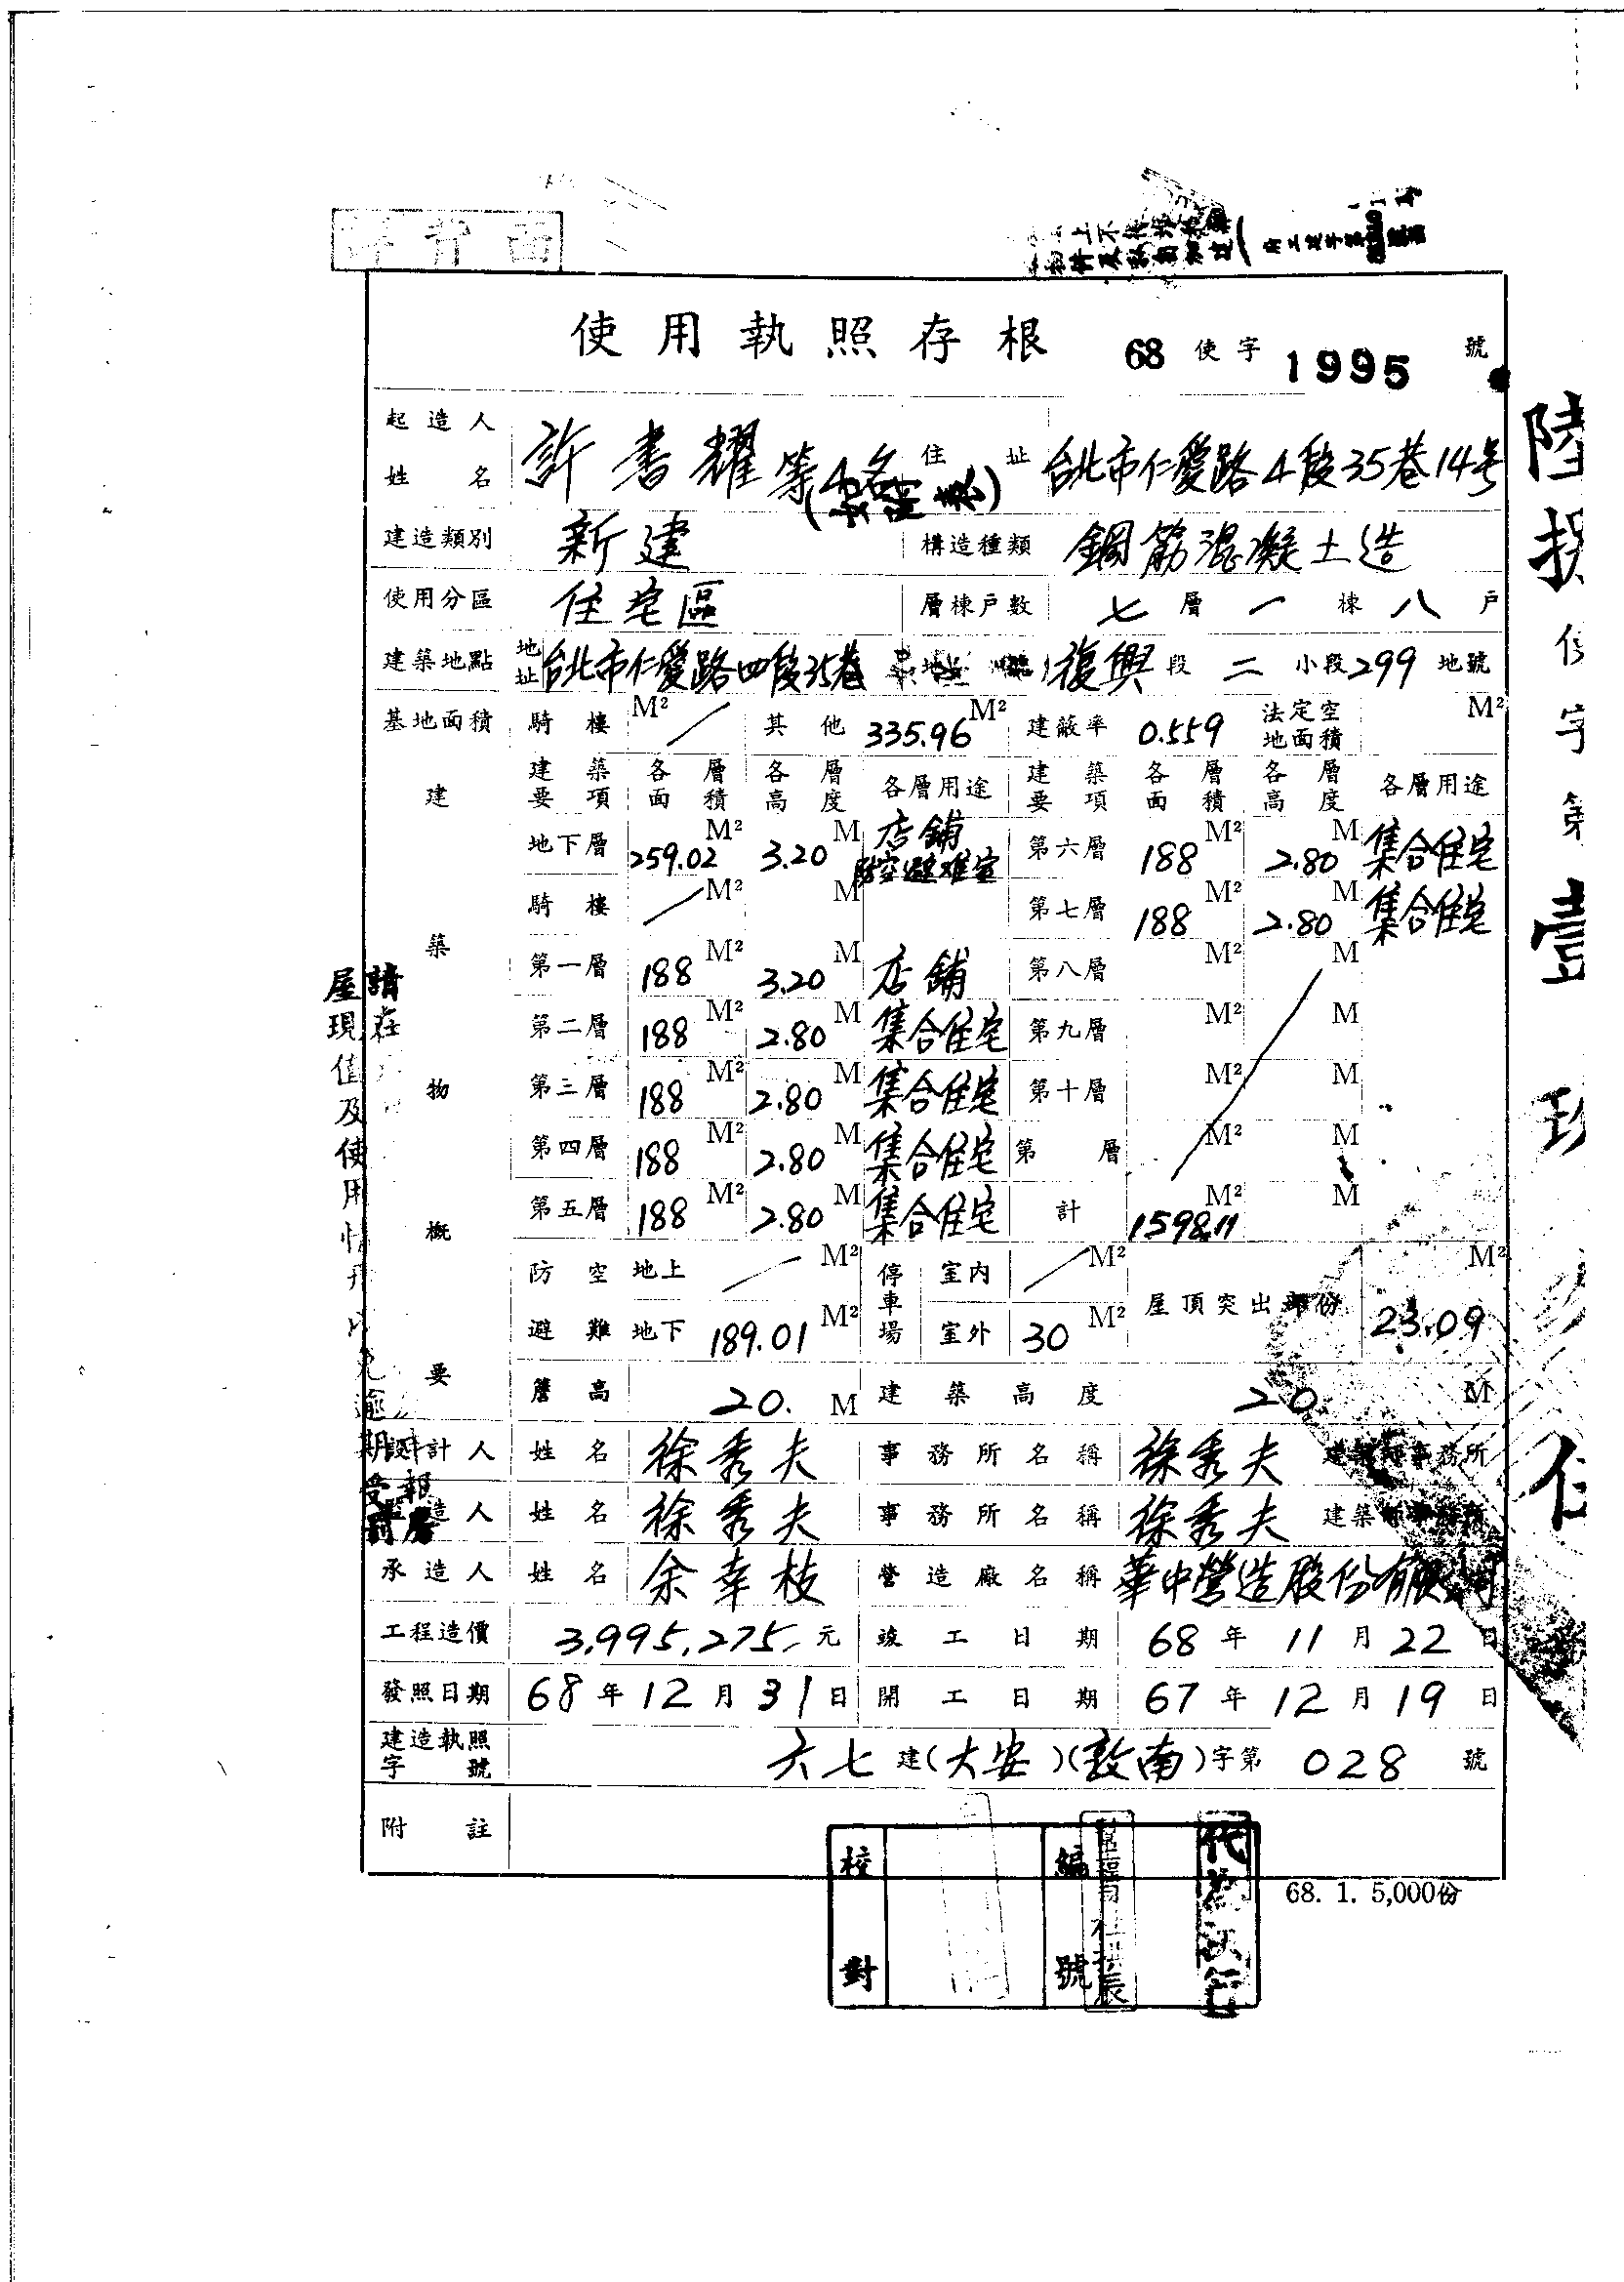 詳背面
使用執照存根 68 使字 1995 號
起造人姓名 許書耀等4名 住址 台北市仁愛路4段35巷14号
建造類別 新建 構造種類 鋼筋混凝土造
使用分區 住宅區 層棟戶數 七層一棟八戶
建築地點 地址 台北市仁愛路四段35巷 復興段二小段299地號
基地面積 騎樓 M² ／ 其他 335.96 M² 建蔽率 0.559 法定空地面積 M²
建築物概要
建築要項 各層面積 各層高度 各層用途 建築要項 各層面積 各層高度 各層用途
地下層 259.02 M² 3.20 M 店鋪 防空避難室 第六層 188 M² 2.80 M 集合住宅
騎樓 ／ M² M 第七層 188 M² 2.80 M 集合住宅
第一層 188 M² 3.20 M 店鋪 第八層 M² M
第二層 188 M² 2.80 M 集合住宅 第九層 M² M
第三層 188 M² 2.80 M 集合住宅 第十層 M² M
第四層 188 M² 2.80 M 集合住宅 第 層 M² M
第五層 188 M² 2.80 M 集合住宅 計 1598.11 M² M
防空避難 地上 ／ M² 停車場 室內 ／ M² 屋頂突出部份 23.09 M²
地下 189.01 M² 室外 30 M²
簷高 20. M 建築高度 20 M
設計人 姓名 徐秀夫 事務所名稱 徐秀夫 建築師事務所
造人 姓名 徐秀夫 事務所名稱 徐秀夫 建築師事務所
承造人 姓名 余幸枝 營造廠名稱 華中營造股份有限公司
工程造價 3,995,275,- 元 竣工日期 68年11月22日
發照日期 68年12月31日 開工日期 67年12月19日
建造執照字號 六七建(大安)(敦南)字第028號
附註
校對 編號
代為決行
68. 1. 5,000份
請在
屋現值及使用情形
逾期
陸捌使字第壹玖玖伍